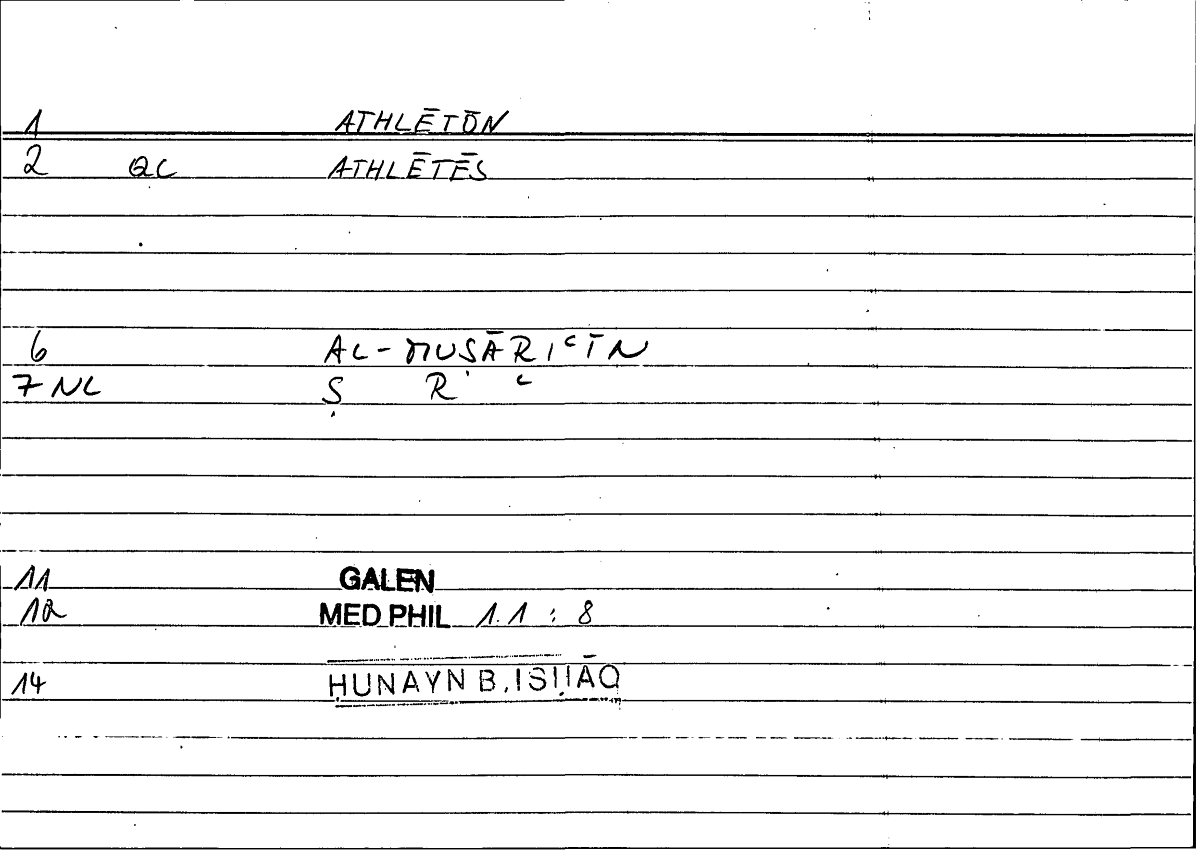 1 ATHLĒTŌN
2 QC ATHLĒTĒS
6 AL-MUSĀRIʿĪN
7 NL Ṣ R ʿ
11 GALEN
12 MED PHIL 1.1 : 8
14 ḤUNAYN B. ISḤĀQ